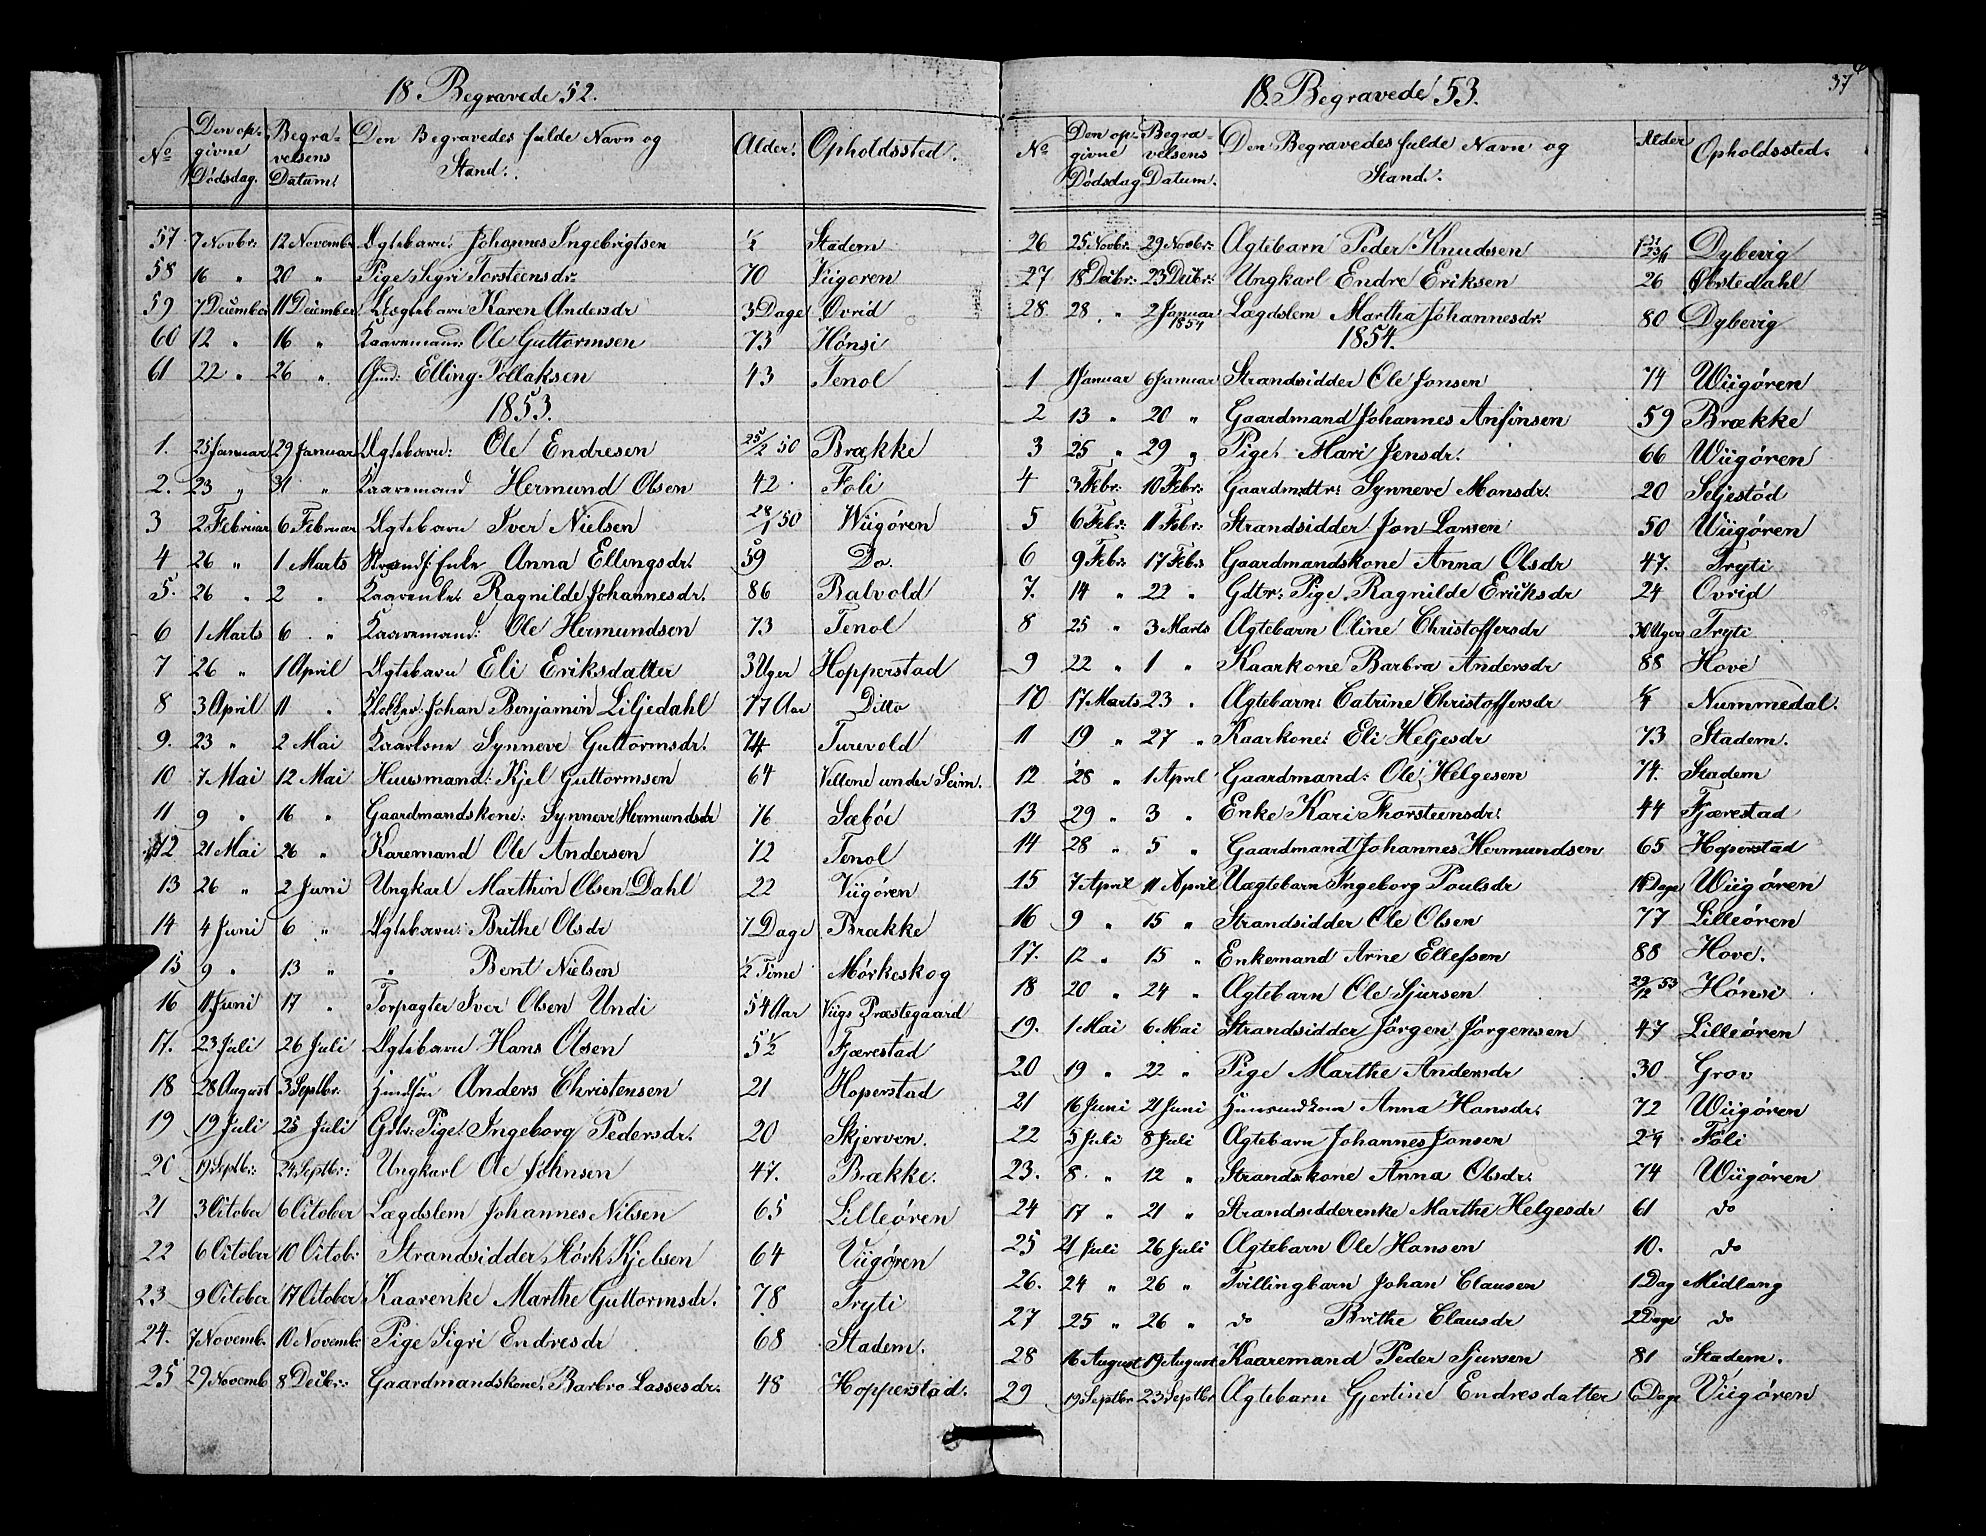 18 Begravede 52.
No Den opgivne Dödsdag. Begravelsens Datum. Den Begravedes fulde Navn og Stand. Alder. Opholdssted.
57 7 Novbr. 12 Novembr Ægtebarn: Johannes Ingebrigtsen ½ Stadem
58 16 " 20 " Pige Sigri Torsteensdr. 70 Viigören
59 7 December 11 December Uægtebarn Karen Andersdr 3 Dage Øvrid
60 12 " 16 " Kaaremand: Ole Guttormsen 73 Hönsi
61 22 " 26 " Elling Follaksen 43 Tenol
1853.
1. 25 Januar 29 Januar Ægtebarn: Ole Endresen 25/2 50 Brække
2. 23 " 31 " Kaaremand Hermund Olsen 42 Föli
3 2 Februar 6 Februar Ægtebarn Iver Nielsen 28/1 50 Wiigören
4 26 " 1 Marts Strands: Enke Anna Ellingsdr. 59 Do.
5. 26 " 2 " Kaarenke. Ragnilde Johannesdr. 86 Balvold
6 1 Marts 6 " Kaaremand: Ole Hermundsen 73 Tenol
7 26 " 1 April Ægtebarn Eli Eriksdatter 3 Uger Hopperstad
8 3 April 11 " Klokker: Johan Benjamin Liljedahl 77 Aar Ditto
9. 23 " 2 Mai Kaarkone Synneve Guttormsdr. 74 Turevold
10 7 Mai 12 Mai Huusmand: Kjel Guttormsen 64 Vellene under Seim.
11 9 " 16 " Gaardmandskone: Synneve Hermundsdr 76 Sæböe
12 21 Mai 26 " Karemand Ole Andersen 72 Tenol
13 26 " 2 Juni Ungkarl Marthin Olsen Dahl 22 Viigören
14 4 Juni 6 " Ægtebarn: Brithe Olsdr 7 Dage Brække
15 9 " 13 " " Bent Nielsen ½ Time Mörkeskog
16 11 Juni 17 " Forpagter Iver Olsen Undi 54 Aar Viigs Præstegaard
17. 23 Juli 26 Juli Ægtebarn Hans Olsen 5½ Fjærestad
18 28 August 3 Septbr. Anders Christensen 21 Hoperstad
19 19 Juli 25 Juli Gdtr: Pige. Ingeborg Pedersdr. 20 Skjerven.
20 19 Septbr: 24 Septbr: Ungkarl Ole Johnsen 47. Brække.
21 3 October 6 October Lægdslem Johannes Nilsen 65 Lilleören
22 6 October 10 Octob: Strandsidder Störk Kjelsen 64 Viigören
23. 9 October 17 October Kaarenke Marthe Guttormsdr. 78 Tryti
24. 7 Novemb. 10 Novemb: Pige Sigri Endresdr 68 Stadem.
25 29 Novemb 8 Decbr: Gaardmandskone. Barbro Lassesdr. 48 Hopperstad.
18. Begravede 53.
37
No Den opgivne Dödsdag Begravelsens Datum. Den Begravedes fulde Navn og Stand. Alder Opholdssted.
26 25 Novbr. 29 Novbr: Ægtebarn Peder Knudsen Dybevig
27 18 Decbr: 23 Decbr: Ungkarl Endre Eriksen 26 Øbstedahl
28 28 " 2 Januar 1854 Lægdslem Martha Johannesdr. 80 Dybevig
1854.
1 1 Januar 6 Januar Strandsidder Ole Jonsen 74 Wiigören
2 13 " 20 " Gaardmand Johannes Anfinsen 59 Brække
3 25 " 29 " Pige Mari Jensdr. 66 Wiigören
4 3 Febr: 10 Febr: Gaardm:dtr: Synneve Monsdr. 20 Seljestöd
5 6 Febr: 11 Febr: Strandsidder Jon Larsen 50 Wiigören
6 9 Febr: 17 Febr: Gaardmandskone Anna Olsdr 47. Tryti
7. 14 " 22 " Gdtr: Pige. Ragnilde Eriksdr 24 Ovrid
8 25 " 3 Marts Ægtebarn Oline Christoffersdr 30 Uger Tryti
9 22 " 1 " Kaarkone Barbra Andersdr 88 Hove
10 17 Marts 23 " Ægtebarn: Catrine Christoffersdr Nummedal.
11 19 " 27 " Kaarkone: Eli Heljesdr 73 Stadem.
12 28 " 1 April Gaardmand: Ole Helgesen 74. Stadem
13 29 " 3 " Enke Kari Thorsteensdr. 44 Fjærestad
14 28 " 5 " Gaardmand Johannes Hermundsen 65 Hoperstad
15 7 April 11 April Uægtebarn Ingeborg Poulsdr 14 Dage Wiigören
16 9 " 15 " Strandsidder Ole Olsen 77 Lilleören
17. 12 " 15 " Enkemand Arne Ellefsen 88 Hove.
18 20 " 24 " Ægtebarn Ole Sjursen 29/12 53 Hönsi
19. 1 Mai 6 Mai Strandsidder Jörgen Jörgensen 47 Lilleören
20 19 " 22 " Pige Marthe Andersdr 30 Grov
21 16 Juni 21 Juni Anna Hansdr. 72 Wiigören
22 5 Juli 8 Juli Ægtebarn Johannes Jonsen 2¼ Föli
23. 8 " 12 " Strandskone Anna Olsdr. 74 Wiigören
24 17 " 21 " Strandsidderenke Marthe Helgesdr 61 do
25 21 Juli 26 Juli Ægtebarn Ole Hansen 10. do
26. 24 " 26 " Tvillingbarn Johan Clausen 1 Dag Midlang
27 25 " 26 " do Brithe Clausdr 2 Dage do
28 16 August 19 August Kaaremand Peder Sjursen 81 Stadem.
29 19 Septbr 23 Septbr Ægtebarn Gjertine Endresdatter 6 Dage Viigören